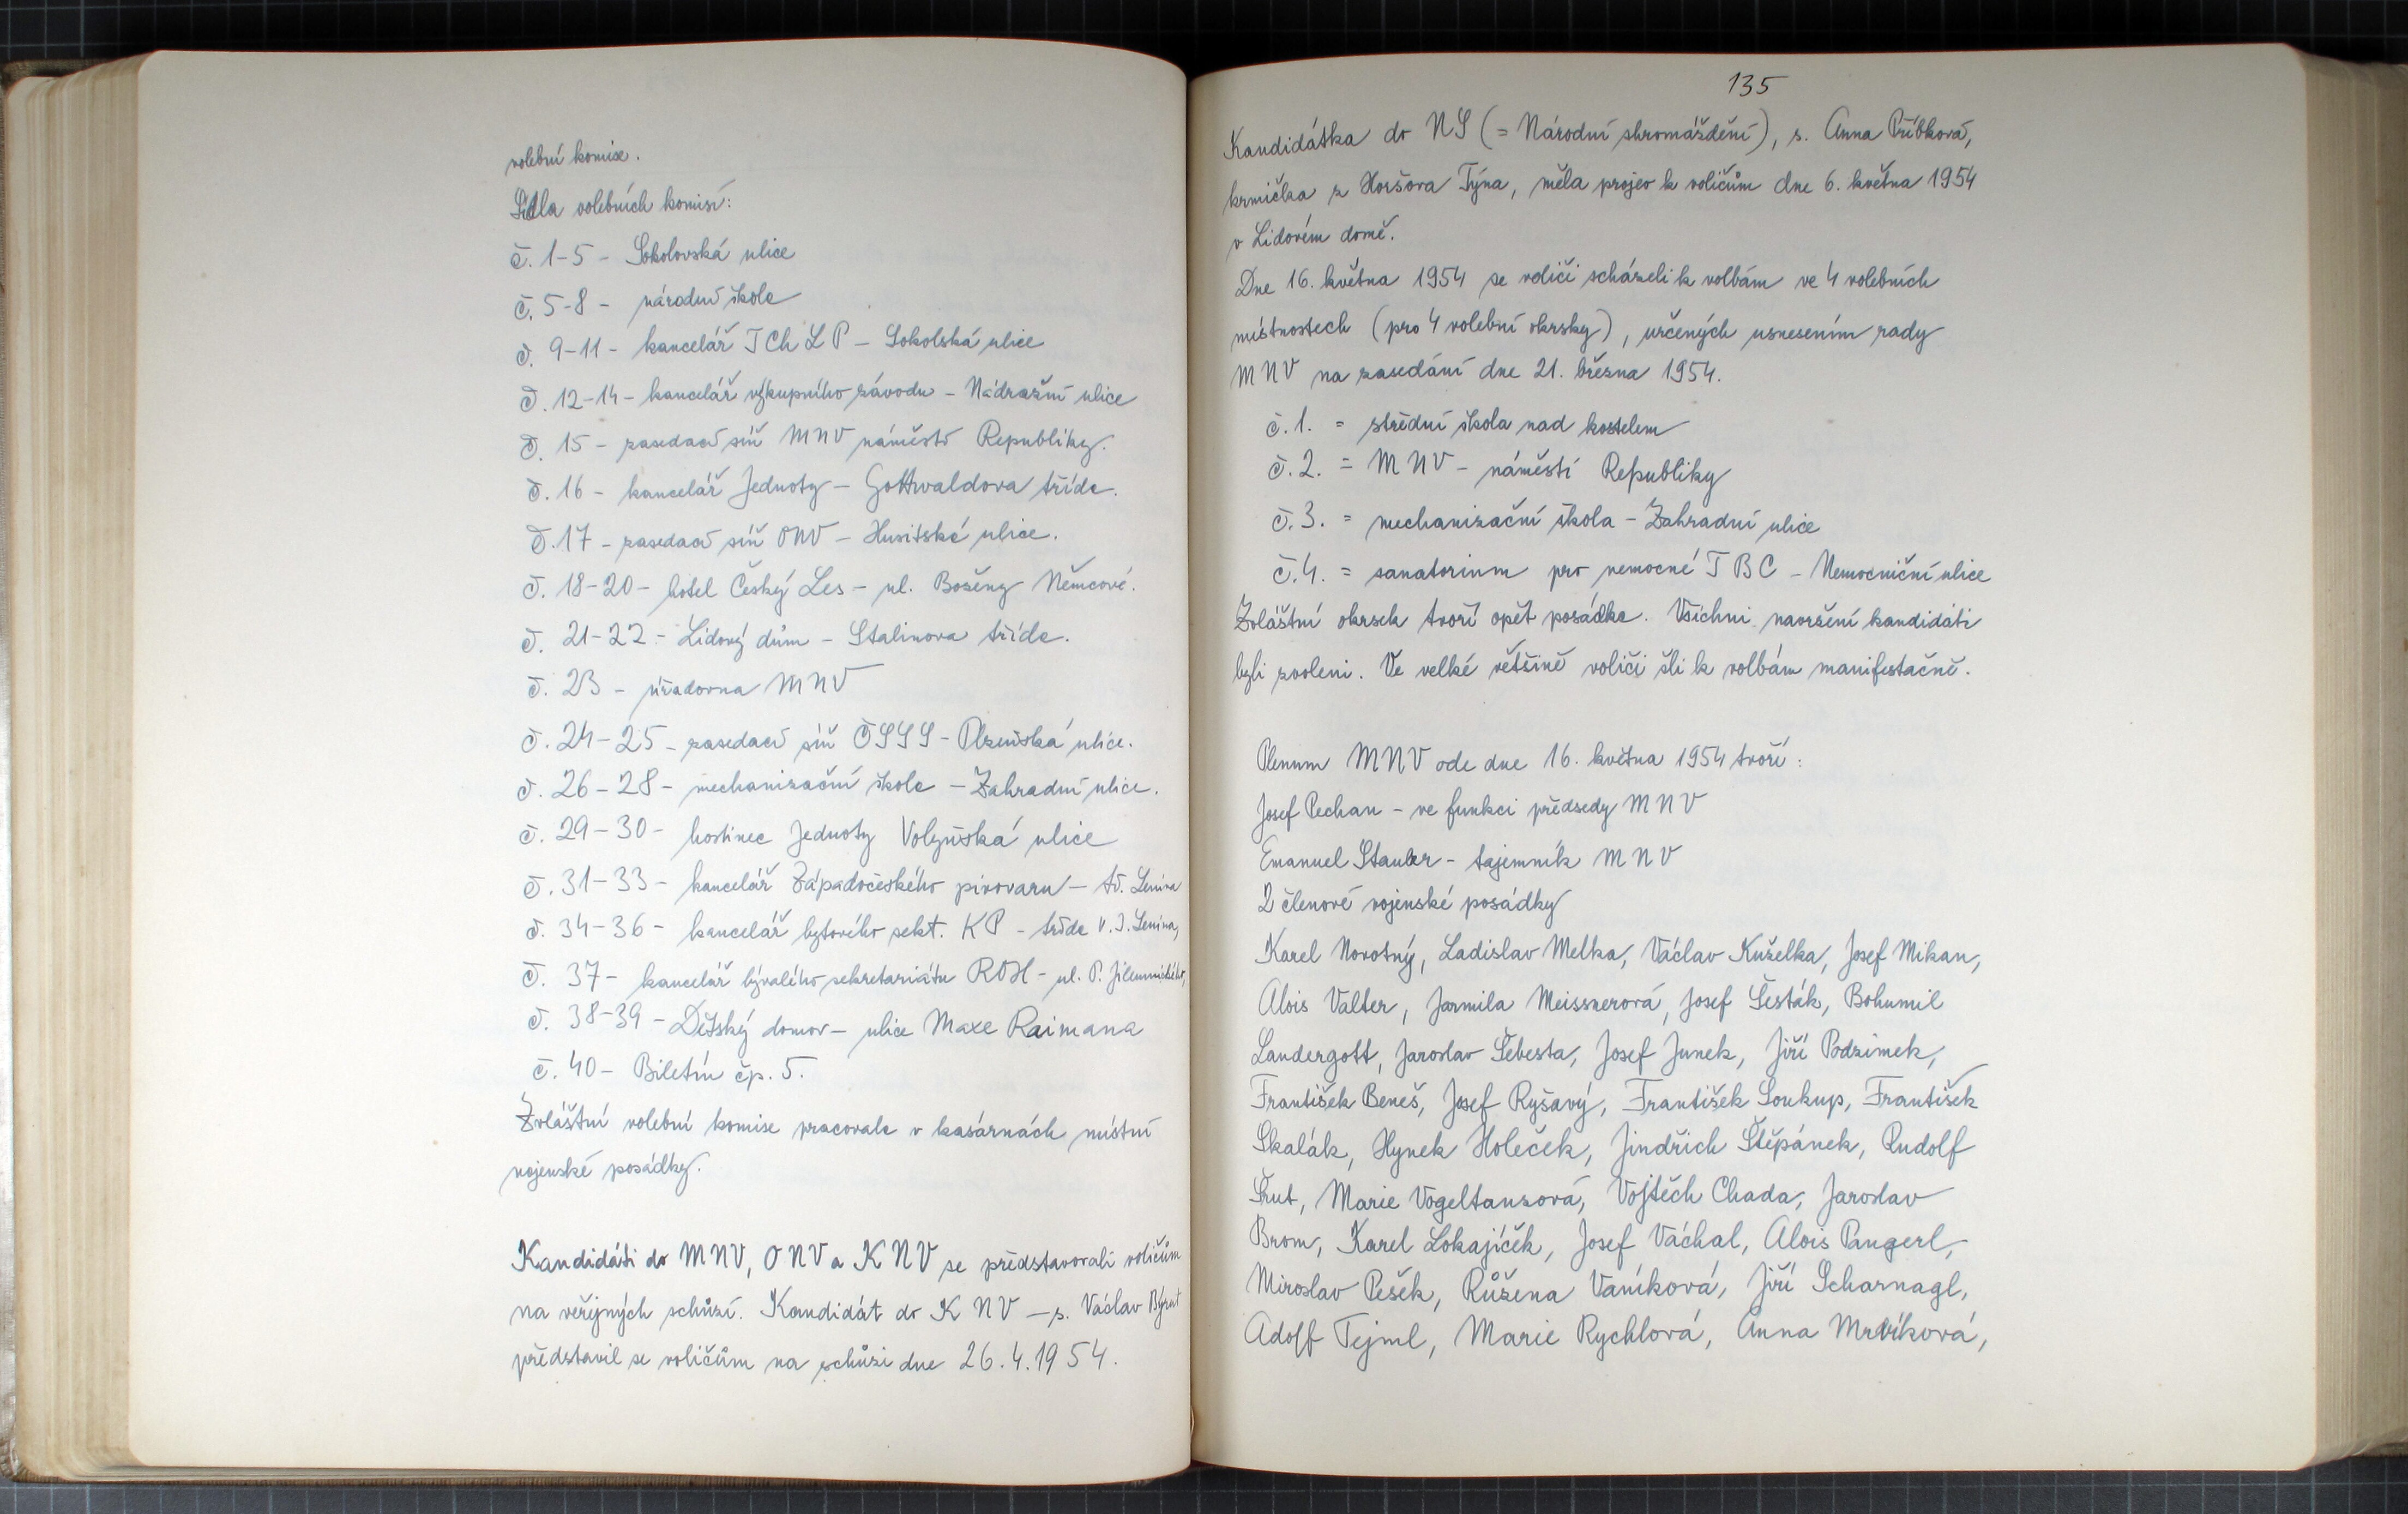 volební komise.
Sídla volebních komisí:
č. 1-5 - Sokolovská ulice
č. 5-8 - národní škola
č. 9-11 - kancelář JChLP - Sokolská ulice
č. 12-14 - kancelář výkupního závodu - Nádražní ulice
č. 15 - zasedací síň MNV náměstí Republiky.
č. 16 - kancelář Jednoty - Gottwaldova třída.
č. 17 - zasedací síň ONV - Husitská ulice.
č. 18-20 - hotel Český Les - ul. Boženy Němcové.
č. 21-22 - Lidový dům - Stalinova třída.
č. 23 - úřadovna MNV
č. 24-25 - zasedací síň ČSSS - Plzeňská ulice.
č. 26-28 - mechanizační škola - Zahradní ulice.
č. 29-30 - hostinec Jednoty Volyňská ulice
č. 31-33 - kancelář Západočeského pivovaru - tř. Lenina
č. 34-36 - kancelář bytového sekt. KP - třída V. I. Lenina,
č. 37 - kancelář bývalého sekretariátu ROH - ul. P. Jilemnického,
č. 38-39 - Dětský domov - ulice Maxe Raimana
č. 40 - Biletín čp. 5.
Zvláštní volební komise pracovala v kasárnách místní
vojenské posádky.
Kandidáti do MNV, ONV a KNV se představovali voličům
na veřejných schůzí. Kandidát do KNV - s. Václav Býrut
představil se voličům na schůzi dne 26.4.1954.
135
Kandidátka do NS (= Národní shromáždění), s. Anna Příbková,
krmička z Horšova Týna, měla projev k voličům dne 6. května 1954
v Lidovém domě.
Dne 16. května 1954 se voliči scházeli k volbám ve 4 volebních
místnostech (pro 4 volební okrsky), určených usnesením rady
MNV na zasedání dne 21. března 1954.
č. 1. = střední škola nad kostelem
č. 2. = MNV - náměstí Republiky
č. 3. = mechanizační škola - Zahradní ulice
č. 4. = sanatorium pro nemocné TBC - Nemocniční ulice
Zvláštní okrsek tvoří opět posádka. Všichni navržení kandidáti
byli zvoleni. Ve velké většině voliči šli k volbám manifestačně.
Plenum MNV ode dne 16. května 1954 tvoří:
Josef Pechan - ve funkci předsedy MNV
Emanuel Stauber - tajemník MNV
2 členové vojenské posádky
Karel Novotný, Ladislav Melka, Václav Kuželka, Josef Mikan,
Alois Valter, Jarmila Meissnerová, Josef Šesták, Bohumil
Landergott, Jaroslav Šebesta, Josef Junek, Jiří Podzimek,
František Beneš, Josef Ryšavý, František Soukup, František
Skalák, Hynek Holeček, Jindřich Štěpánek, Rudolf
Šrut, Marie Vogeltanzová, Vojtěch Chada, Jaroslav
Brom, Karel Lokajíček, Josef Váchal, Alois Pangerl,
Miroslav Pešek, Růžena Vaníková, Jiří Scharnagl,
Adolf Tejml, Marie Rychlová, Anna Mrvíková,